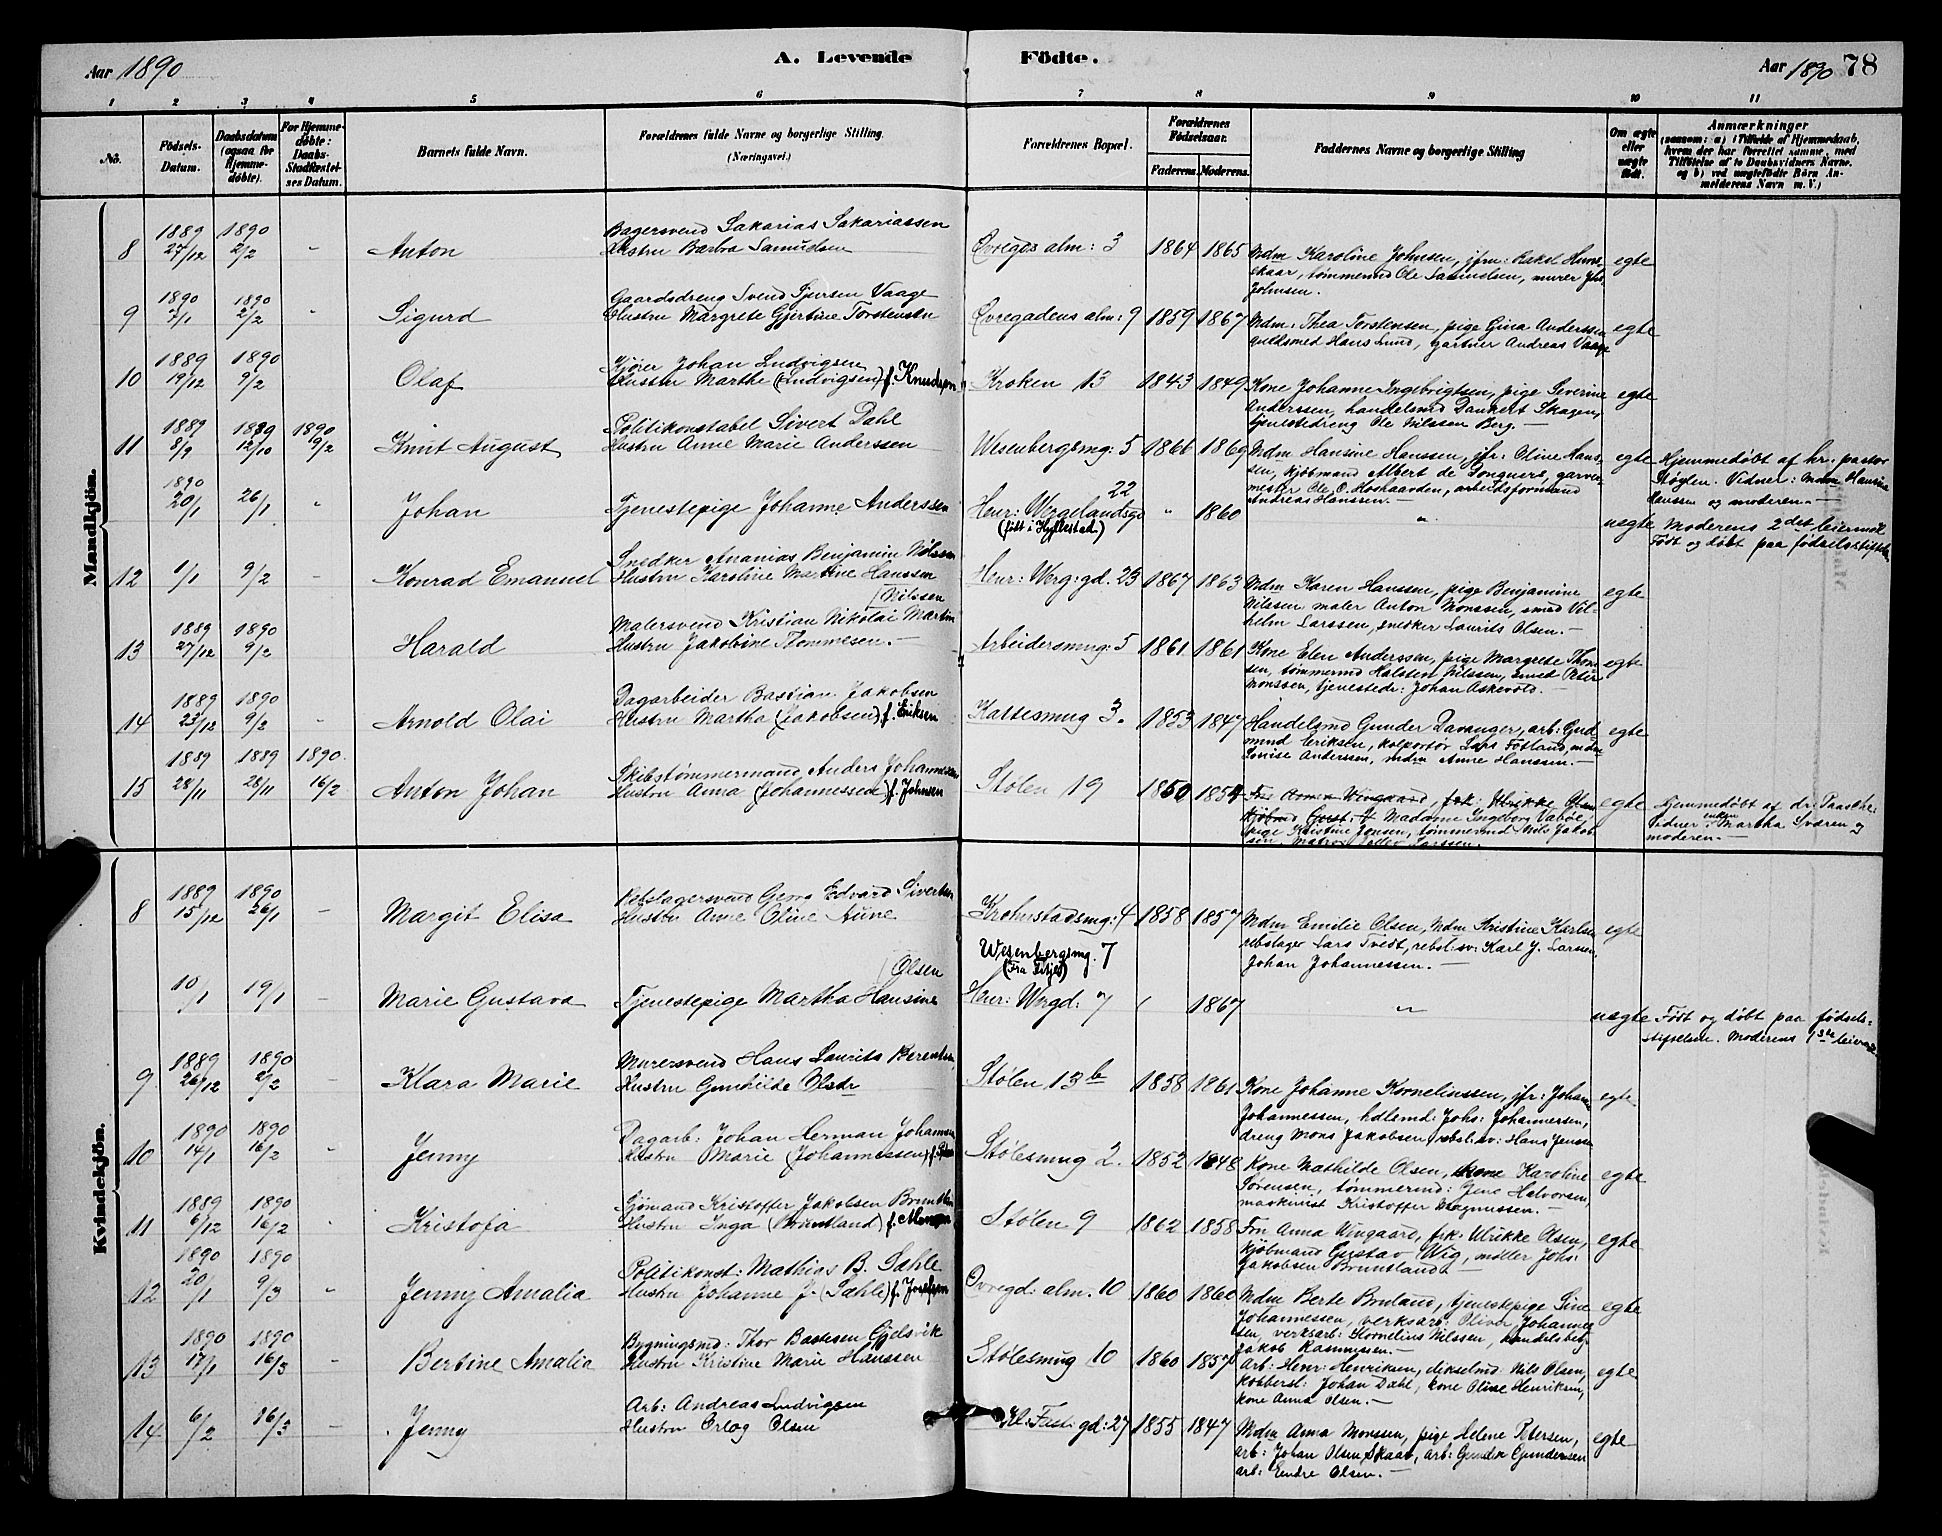 Aar 1890 A. Levende Födte. Aar 1890 78
1 2 3 4 5 6 7 8 9 10 11
No. Födsels-Datum. Daabsdatum (ogsaa for Hjemme-döbte). For Hjemme-döbte: Daabs-Stadfæstel-ses Datum. Barnets fulde Navn. Forældrenes fulde Navne og borgerlige Stilling. (Næringsvei.) Forældrenes Bopæl. Forældrenes Födselsaar. Faderens. Moderens. Faddernes Navne og borgerlige Stilling Om ægte eller uægte födt. Anmærkninger
(saasom: a) i Tilfælde af Hjemmedaab, hvem der har forrettet samme, med Tilföielse af to Daabsvidners Navne, og b) ved uægtefödte Börn An-melderens Navn m. V.)
Mandkjön.
8 1889 27/12 1890 2/2 " Anton Bagersvend Sakarias Sakariassen
Hustru Barbra Samuelsen Øvregds alm: 3 1864 1865 Mdm Karoline Johnsen, jfru: Rakel
skaar, tømmermd Ole Samuelsen, murer Johs
Johnsen. egte
9 1890 2/1 1890 2/2 " Sigurd Gaardsdreng Svend Iversen Vaage
Hustru Margrete Gjertine Torstensen Øvregadens alm: 9 1859 1867 Mdm: Thea Torstensen, pige Gina Anderssen
guldsmed Hans Lund, gartner Andreas Vaage egte
10 1889 19/12 1890 9/2 Olaf Kjører Johan Ludvigsen
Hustru Marthe (Ludvigsen) f. Knudsen Kroken 13 1843 1849 Kone Johanne Ingebrigtsen, pige Severine
Anderssen, handelsmd Dankert Skagen,
tjenestedreng Ole Nilssen Berg. — egte
11 1889 8/9 1889 12/10 1890 9/2 Knut August Politikonstabel Sivert Dahl
Hustru Anne Marie Anderssen Wesenbergsmg: 5 1866 1869 Mdm Hansine Hanssen, jfr: Oline Hans-
sen, kjøbmand Albert de garver-
mester Ole O. arbeidsformand
Andreas Hanssen. — egte Hjemmedøbt af hr. pastor
Støylen. Vidner: Mdm Hansine
Hanssen og moderen. —
1890 20/1 26/1 " Johan Tjenestepige Johanne Anderssen Henr: Wergelandsgd 22
(født i Hyllestad) " 1860 " uegte Moderens 2det leiermaal
Født og døbt paa fødselsstiftelsen
12 1/1 9/2 - Konrad Emanuel Snedker Ananias Benjamin Nilssen
Hustru Karoline Martine Hanssen
/Nilssen Henr: Werg: gd. 23 1867 1863 Mdm Karen Hanssen, pige Benjamine
Nilssen maler Anton Monssen, smed Vil-
helm Larssen, snedker Laurits Olsen. — egte
13 1889 27/12 1890 9/2 Harald Malersvend Kristian Nikolai Martin
Hustru Jakobine Thommesen. — Arbeidersmug: 5 1861 1861 Kone Elen Anderssen, pige Margrete Thom
sen, tømmermd Halsten Nilssen, smed Peter
Monssen, tjenestedr: Johan Askevold. — egte
14 1889 23/12 1890 9/2 " Arnold Olai Dagarbeider Bastian Jakobsen
Hustru Martha (Jakobsen) f. Eriksen Kattesmug 3. 1853 1847 Handelsmd Gunder Davanger, arb: Gud-
mund Eriksen, kolportør Lars Fotland, mdm
Lovise Anderssen, mdm Anne Hanssen. — egte
15 1889 28/11 1889 28/11 1890 16/2 Anton Johan Skibstømmermand Anders Johannessen
Hustru Anna (Johannessen) f. Johnsen Stølen 19 1850 1854 Fru Anna Wingaard, frk: Ulrikke Olsen
kjøbmd Gust: W Madame Ingeborg Vabøe,
pige Kristine Jonsen, tømmermd Nils Jakob-
sen, matros Larssen. egte Hjemmedøbt af dr: Paasche.
Vidner: enken Martha Sværen og
moderen. —
Kvindekjön.
8 1889 15/12 1890 26/1 - Margit Elisa Rebslagersvend Georg Edvard Sivertsen
Hustru Anne Oline Aune Krohnstadsmg: 4 1858 1857 Mdm Emilie Olsen, Mdm Kristine Karlsen
rebslager Lars Tvedt, rebsl: sv: Karl J. Larsen
Johan Johannessen. — egte
10/1 19/1 - Marie Gustava Tjenestepige Martha Hansine
/Olsen Wesenbergsmg. 7
(Fra Fitje)
Henr: Wrgd: 7 1867 " uegte Født og døbt paa fødsels-
stiftelsen. Moderens 1ste leiermaal
9 1889 26/12 1890 2/2 - Klara Marie Murersvend Hans Laurits Berentsen
Hustru Gunhilde Olsdr Stølen 13b 1858 1861 Kone Johanne Kornelinssen, jfr: Johan
Johannessen, hdlsmd: Johs: Johannessen,
dreng Mons Jakobsen, rebsl: sv: Hans Jensen egte
10 1890 14/1 1890 16/2 " Jenny Dagarb: Johan Herman Johannessen
Hustru Marie (Johannessen) Stølesmug 2. 1852 1848 Kone Mathilde Olsen, kone Karoline
Sørensen, tømmermd: Jens Halvorsen,
maskinist Kristoffer Magnussen. — egte
11 1889 6/12 1890 16/2 " Kristofa Sjømand Kristoffer Jakobsen Bruntland
Hustru Inga (Bruntland) f. Monsen Stølen 9 1862 1858 Fru Anna Wingaard, frk: Ulrikke Olsen,
kjøbmand Gustav Wig, møller Johs:
Jakobsen Bruntlandt — egte
12 1890 20/1 1890 9/3 " Jenny Amalia Politikonst: Mathias B. Sahle
Hustru Johanne J. (Sahle) f. Josefsen Øvregd: alm. 10 1860 1860 Mdm Berte Bruland, tjenestepige Sine
Johannessen, verksarb: Oliver Johannes-
sen, verksarb: Kornelius Nilssen,
Jakob Rasmussen. — egte
13 1890 17/1 1890 16/3 - Bertine Amalia Bygningsmd: Thor Bastesen Gjelsvik
Hustru Kristine Marie Hanssen Stølesmug 10 1860 1857 Arb: Henr: Henriksen, dikselmd: Nils Olsen,
kobbersl: Johan Dahl, kone Oline Henriksen,
kone Anna Olsen. — egte
14 6/2 16/3 - Jenny Arb: Andreas Ludvigsen
Hustru Orlog Olsen Kl: Fust: gd: 27 1855 1847 Mdm Anna Monssen, pige Helene Petersen,
arb: Johan Olsen Skaar, arb: Gunder Gundersen
arb: Endre Olsen. — egte